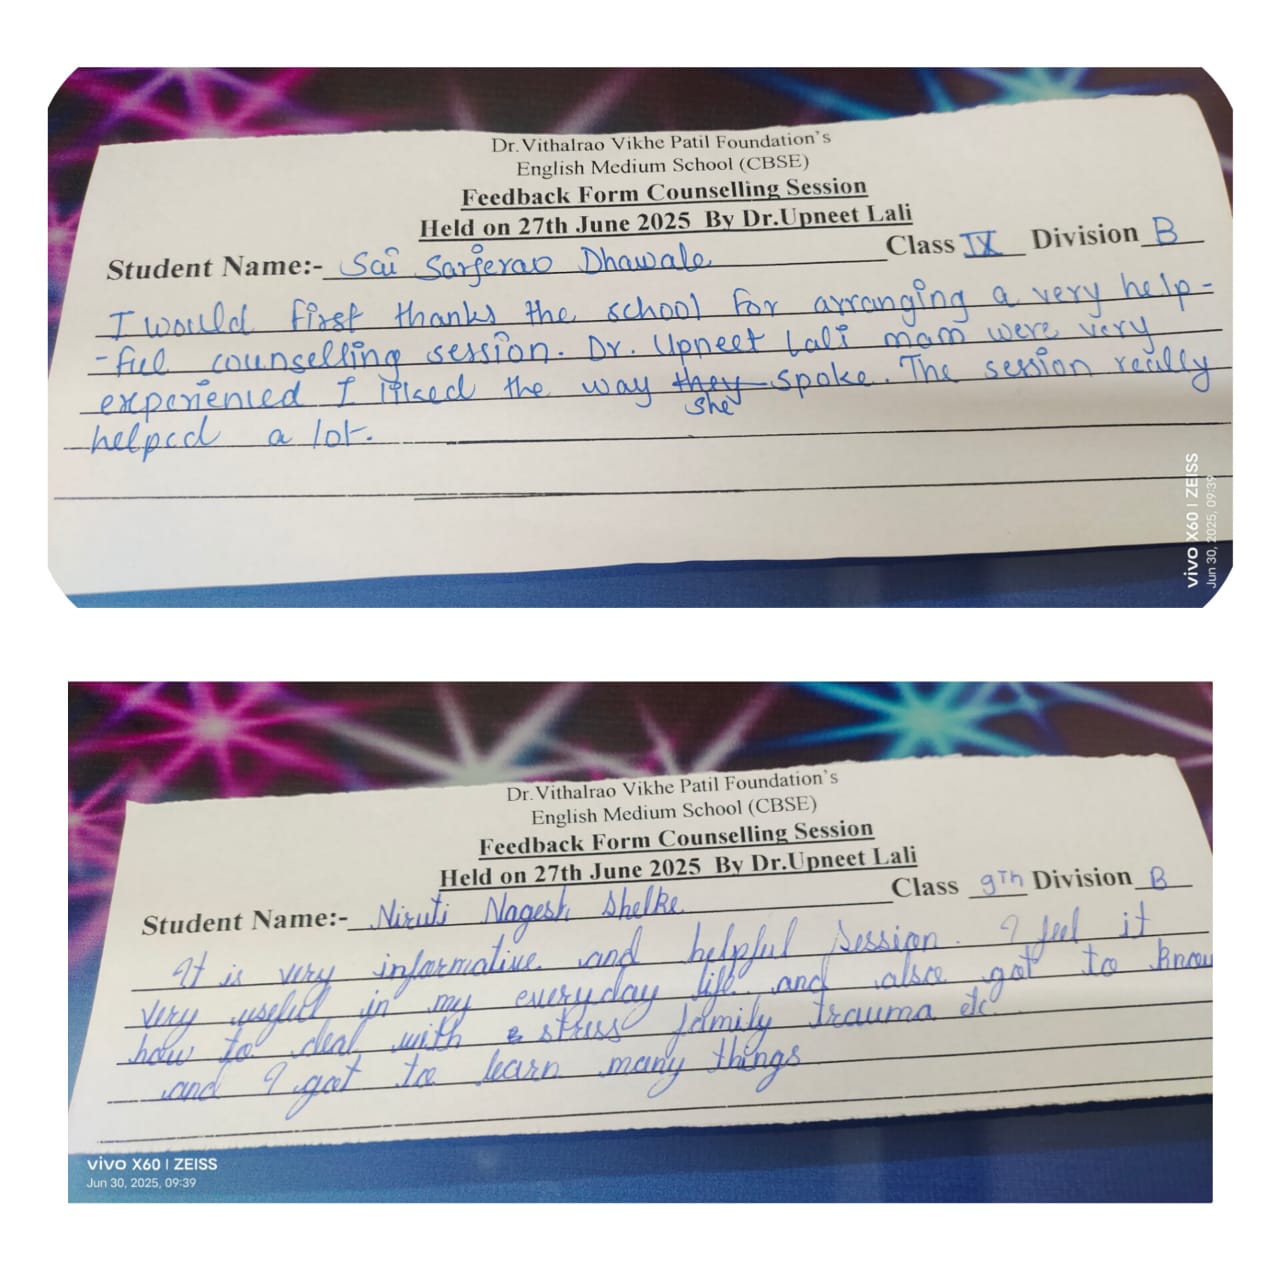 Dr.Vithalrao Vikhe Patil Foundation's
English Medium School (CBSE)
Feedback Form Counselling Session
Held on 27th June 2025 By Dr.Upneet Lali
Student Name:- Sai Sarjerao Dhawale Class IX Division B
I would first thanks the school for arranging a very help-
-ful counselling session. Dr. Upneet Lali mam were very
experienced I liked the way they spoke. The session really
she
helped a lot.
vivo X60 | ZEISS
Jun 30, 2025, 09:39
Dr.Vithalrao Vikhe Patil Foundation's
English Medium School (CBSE)
Feedback Form Counselling Session
Held on 27th June 2025 By Dr.Upneet Lali
Student Name:- Niruti Nagesh Shelke Class 9Th Division B
It is very informative and helpful session. I feel it
very useful in my everyday life and also got to know
how to deal with stress family trauma etc
and I got to learn many things
vivo X60 | ZEISS
Jun 30, 2025, 09:39